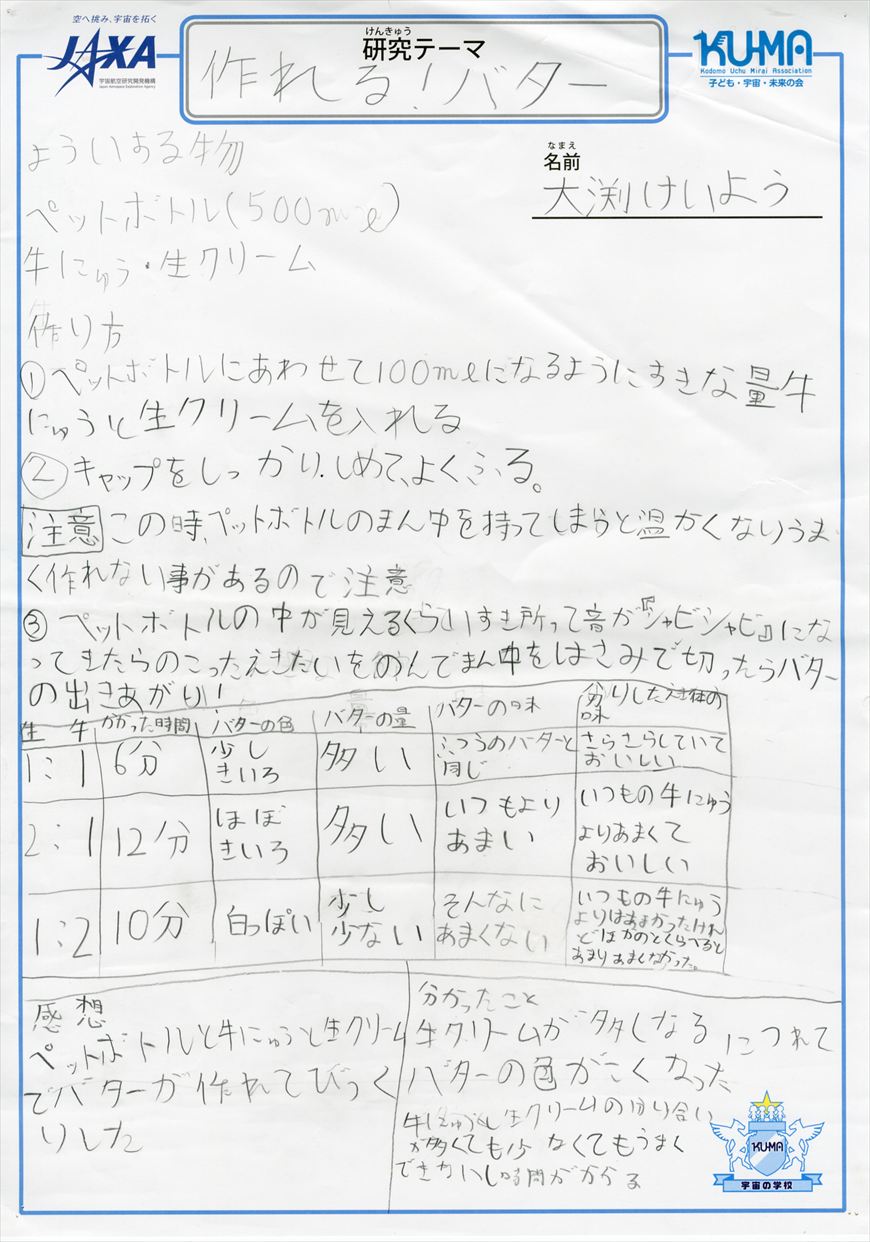 空へ挑み、宇宙を拓く
JAXA
宇宙航空研究開発機構
Japan Aerospace Exploration Agency
けんきゅう
研究テーマ
作れる!バター
KU-MA
Kodomo Uchu Mirai Association
子ども・宇宙・未来の会
よういする物
なまえ
名前
大渕けいよう
ペットボトル(500mℓ)
牛にゅう・生クリーム
作り方
①ペットボトルにあわせて100mℓになるようにすきな量牛
にゅうと生クリームを入れる
②キャップをしっかりしめて、よくふる。
注意 この時、ペットボトルのまん中を持ってしまうと温かくなりうま
く作れない事があるので注意
③ペットボトルの中が見えるくらいすき所って音が『シャビシャビ』にな
ってきたらのこったえきたいをのんでまん中をはさみで切ったらバター
の出きあがり!
生 牛 かかった時間 バターの色 バターの量 バターの味 分りした液体の味
1:1 6分 少しきいろ 多い ふつうのバターと同じ さらさらしていておいしい
2:1 12分 ほぼきいろ 多い いつもよりあまい いつもの牛にゅうよりあまくておいしい
1:2 10分 白っぽい 少し少ない そんなにあまくない いつもの牛にゅうよりはあまかったけれどほかのとくらべるとあまりあまくなかった。
感想
ペットボトルと牛にゅうと生クリーム
でバターが作れてびっく
りした
分かったこと
生クリームが多くなるにつれて
バターの色がこくなった
牛にゅうと生クリームのわり合い
が多くても少なくてもうまく
できないし時間がかかる
KU-MA
宇宙の学校